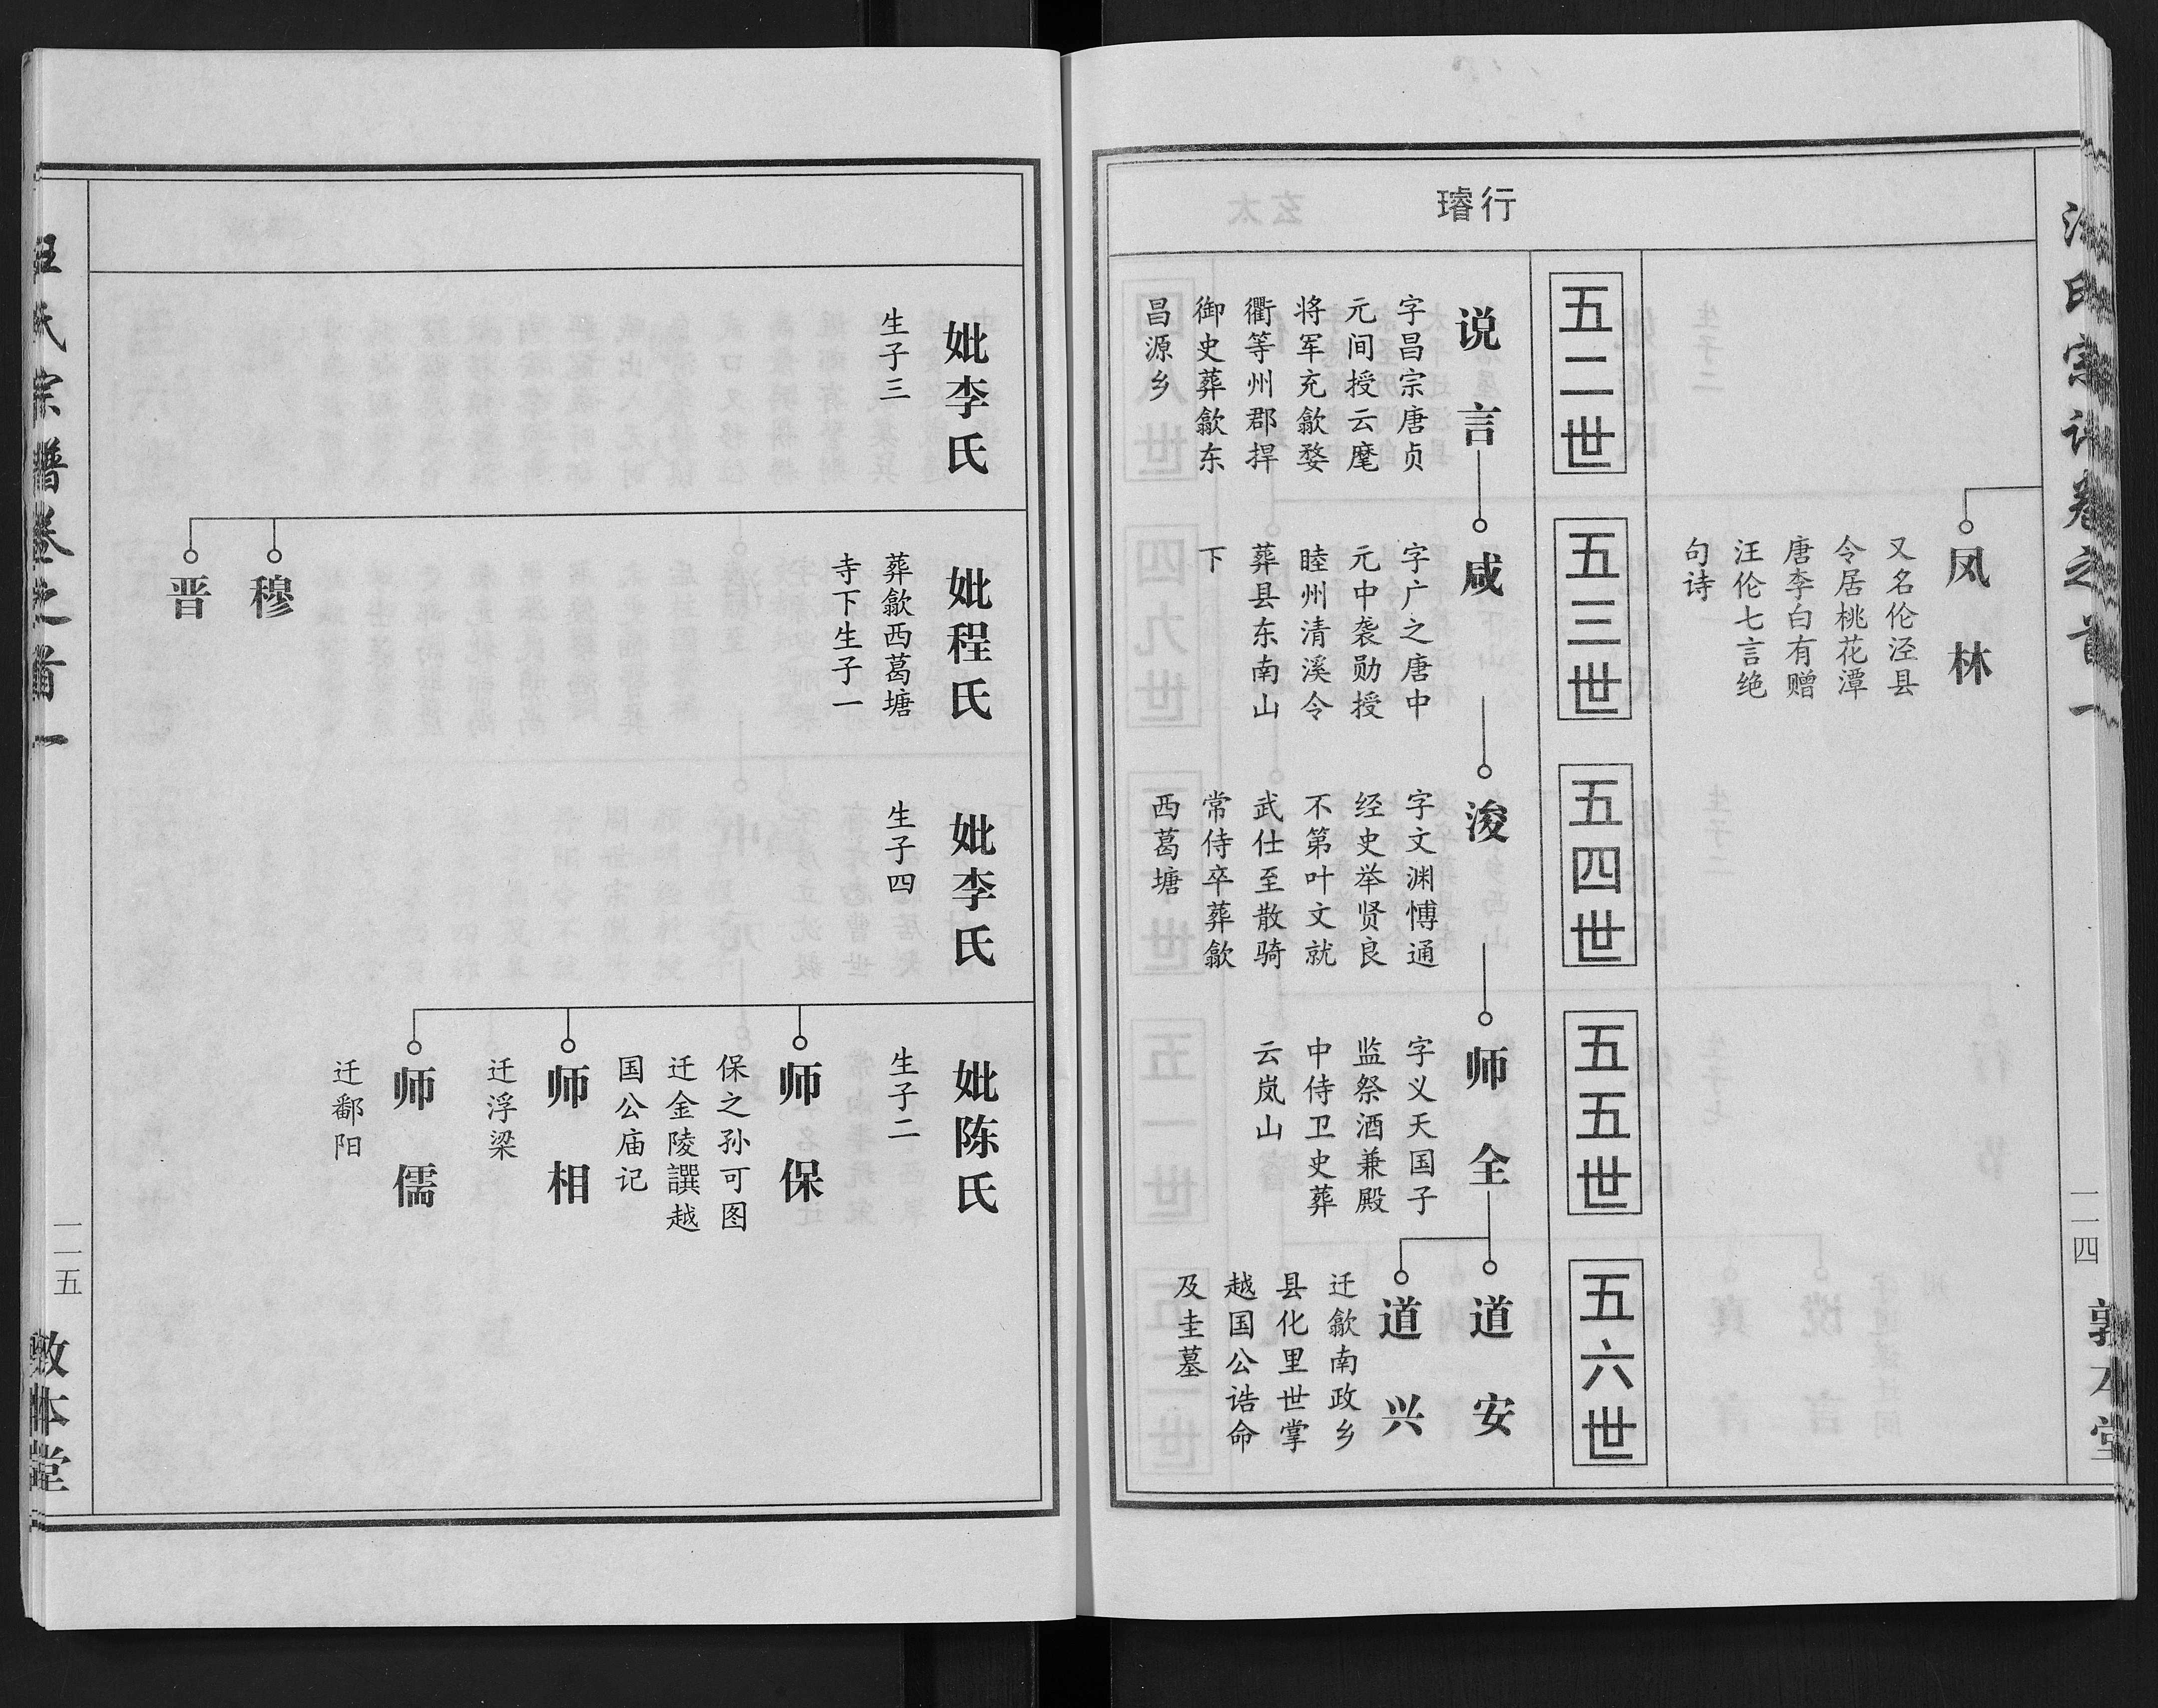 汪氏宗谱卷之首一
一一四
敦本堂
凤林
又名伦泾县
令居桃花潭
唐李白有赠
汪伦七言绝
句诗
璿行
五二世
五三世
五四世
五五世
五六世
说言
字昌宗唐贞
元间授云麾
将军充歙婺
衢等州郡捍
御史葬歙东
昌源乡
咸
字广之唐中
元中袭勋授
睦州清溪令
葬县东南山
下
浚
字文渊愽通
经史举贤良
不第叶文就
武仕至散骑
常侍卒葬歙
西葛塘
师全
字义天国子
监祭酒兼殿
中侍卫史葬
云岚山
道安
道兴
迁歙南政乡
县化里世掌
越国公诰命
及圭墓
妣李氏
生子三
妣程氏
葬歙西葛塘
寺下生子一
穆
晋
妣李氏
生子四
妣陈氏
生子二
师保
保之孙可图
迁金陵譔越
国公庙记
师相
迁浮梁
师儒
迁鄱阳
汪氏宗谱卷之首一
一一五
敦本堂